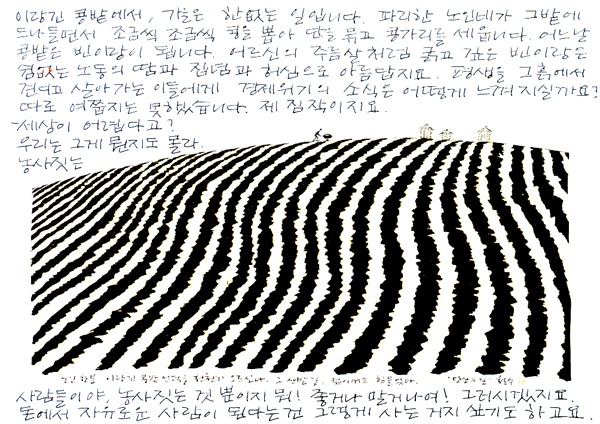 이랑긴 콩밭에서, 가을은 한없는 일입니다. 파리한 노인네가 그밭에
드나들면서 조금씩 조금씩 콩을 뽑아 단을 묶고 콩가리를 세웁니다. 어느날
콩밭은 빈이랑이 됩니다. 어르신의 주름살처럼 굵고 깊은 빈이랑은
꾐없는 노동의 땀과 집념과 허심으로 아름답지요. 평생을 그흙에서
견디고 살아가는 이들에게 경제위기의 소식은 어떻게 느껴지실까요?
따로 여쭙지는 못했습니다. 제 짐작이지요.
-세상이 어렵다고?
우리는 그게 뭔지도 몰라.
농사짓는
노인 한분 이랑긴 콩밭 언덕을 천천히 오르신다. 그
사람들이야, 농사짓는 것 뿐이지 뭐! 좋거나 말거나여! 그러시겠지요.
돈에서 자유로운 사람이 된다는건 그렇게 사는 거지 싶기도 하고요.